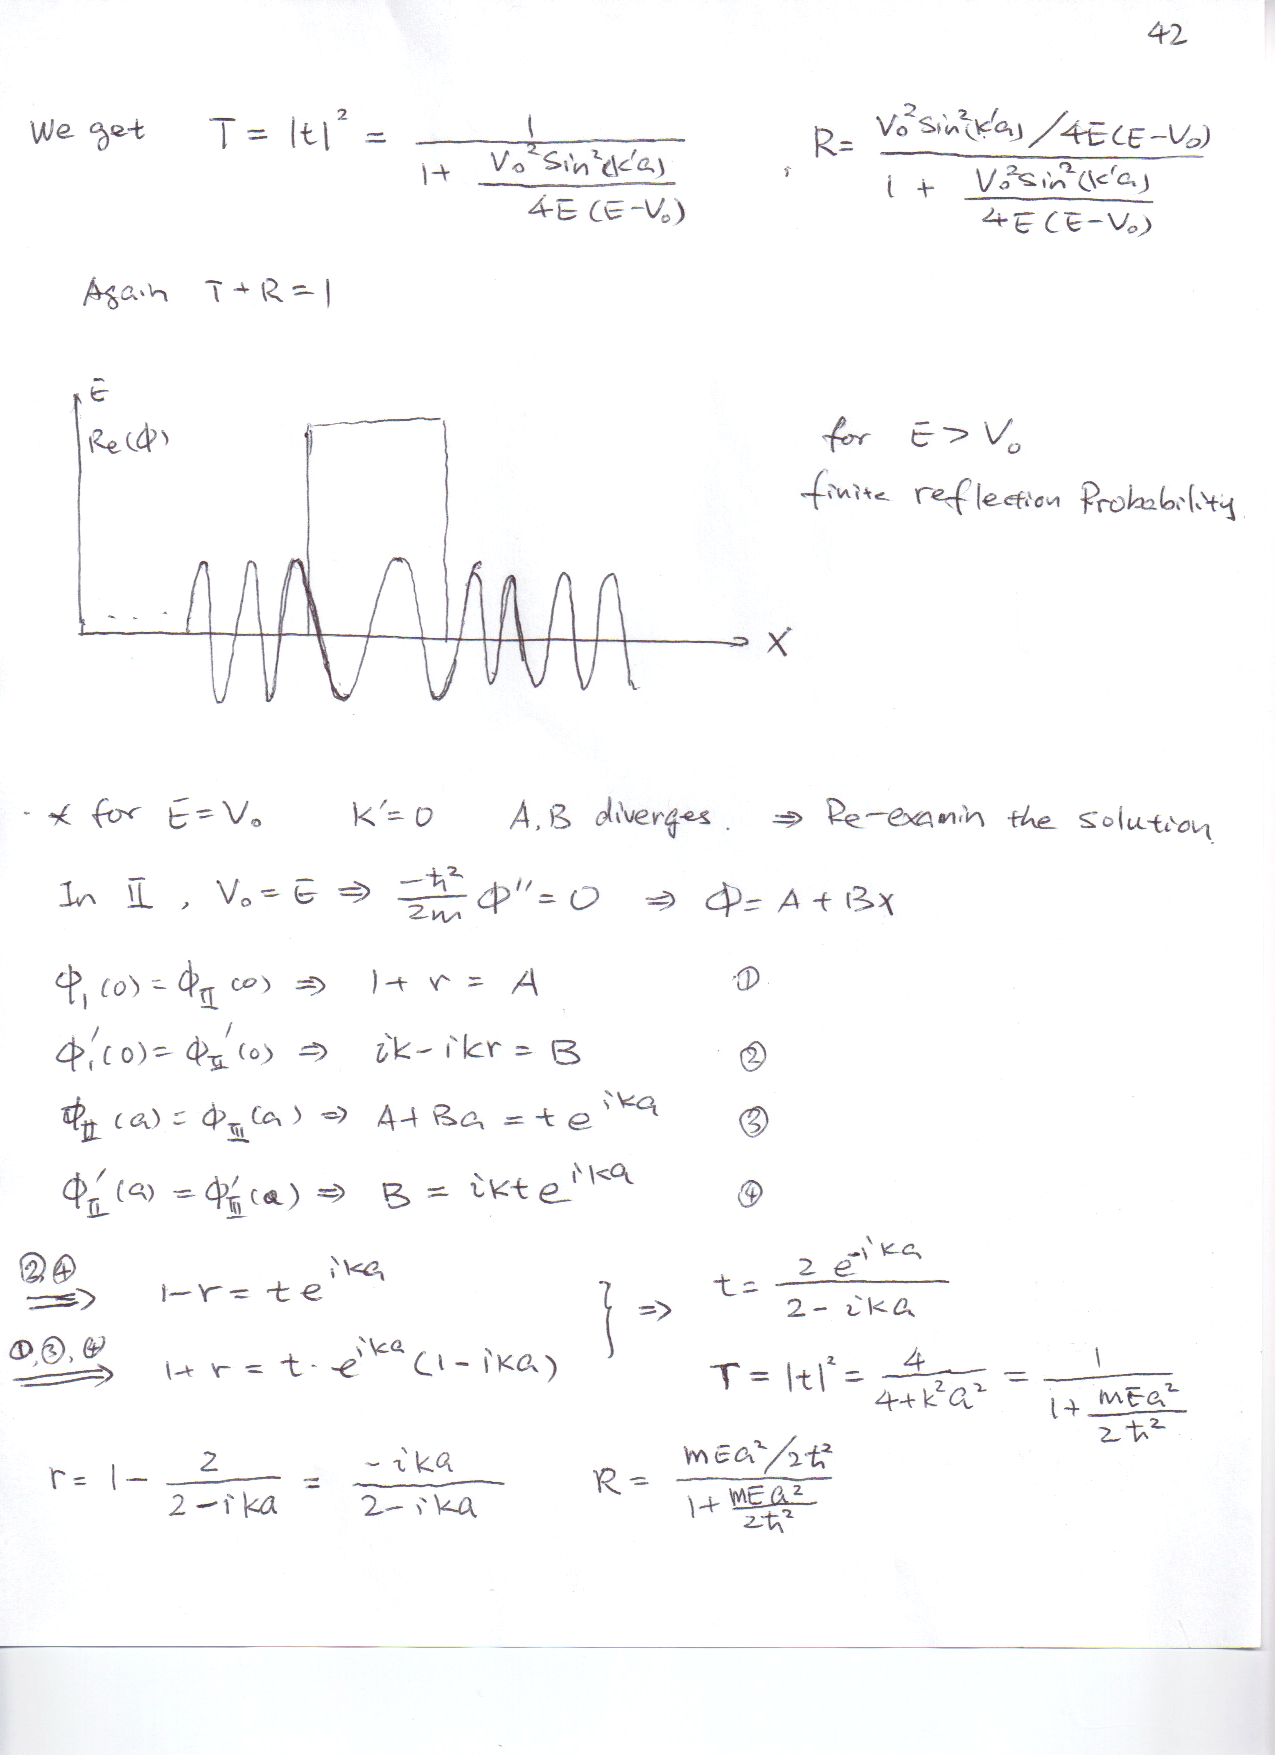 42
We get T = |t|² = 1 / (1 + V₀² Sin²(k'a) / 4E(E-V₀)) , R = (V₀² Sin²(k'a) / 4E(E-V₀)) / (1 + V₀² Sin²(k'a) / 4E(E-V₀))
Again T + R = 1
E
Re(ϕ)
for E > V₀
finite reflection Probability
X
* for E = V₀ K' = 0 A, B diverges. ⇒ Re-examin the solution
In II , V₀ = E ⇒ -ħ²/2m ϕ'' = 0 ⇒ ϕ = A + BX
ϕ_I(0) = ϕ_II(0) ⇒ 1 + r = A ①
ϕ_I'(0) = ϕ_II'(0) ⇒ ik - ikr = B ②
ϕ_II(a) = ϕ_III(a) ⇒ A + Ba = t e^{ika} ③
ϕ_II'(a) = ϕ_III'(a) ⇒ B = ikt e^{ika} ④
②,④ ⇒ 1 - r = t e^{ika}
①,③,④ ⇒ 1 + r = t · e^{ika} (1 - ika) } ⇒ t = 2 e^{-ika} / (2 - ika)
T = |t|² = 4 / (4 + k²a²) = 1 / (1 + mEa²/2ħ²)
r = 1 - 2 / (2 - ika) = -ika / (2 - ika) R = (mEa²/2ħ²) / (1 + mEa²/2ħ²)